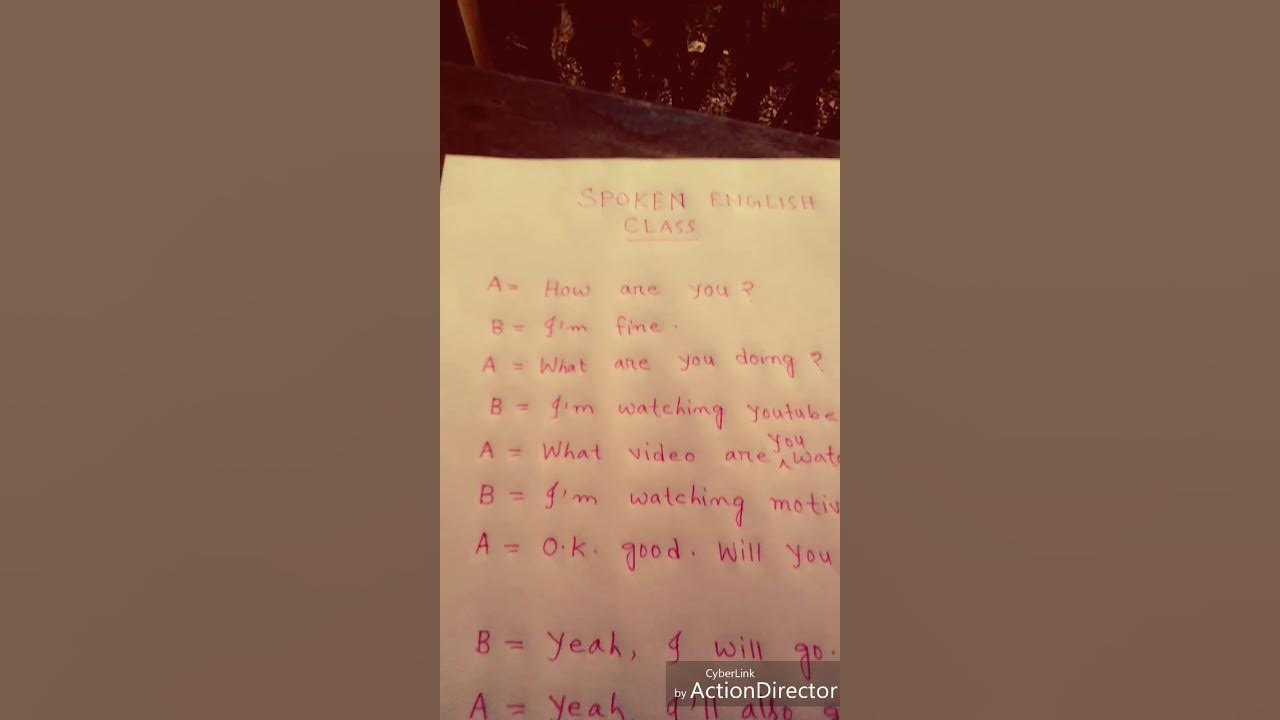 SPOKEN ENGLISH
CLASS
A = How are you?
B = I'm fine.
A = What are you doing?
B = I'm watching youtube
A = What video are you
B = I'm watching
A = O.K. good. Will you
B = Yeah, I will go.
A = Yeah I'll also
CyberLink
by ActionDirector